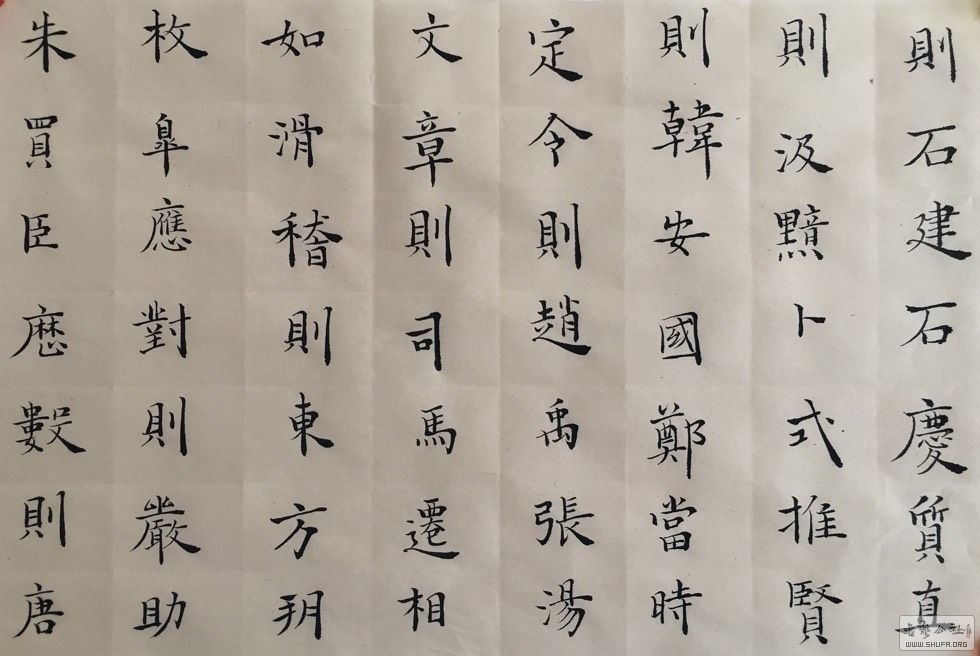 則石建石慶質直
則汲黯卜式推賢
則韓安國鄭當時
定令則趙禹張湯
文章則司馬遷相
如滑稽則東方朔
枚皐應對則嚴助
朱買臣歷數則唐
WWW.SHUFA.ORG